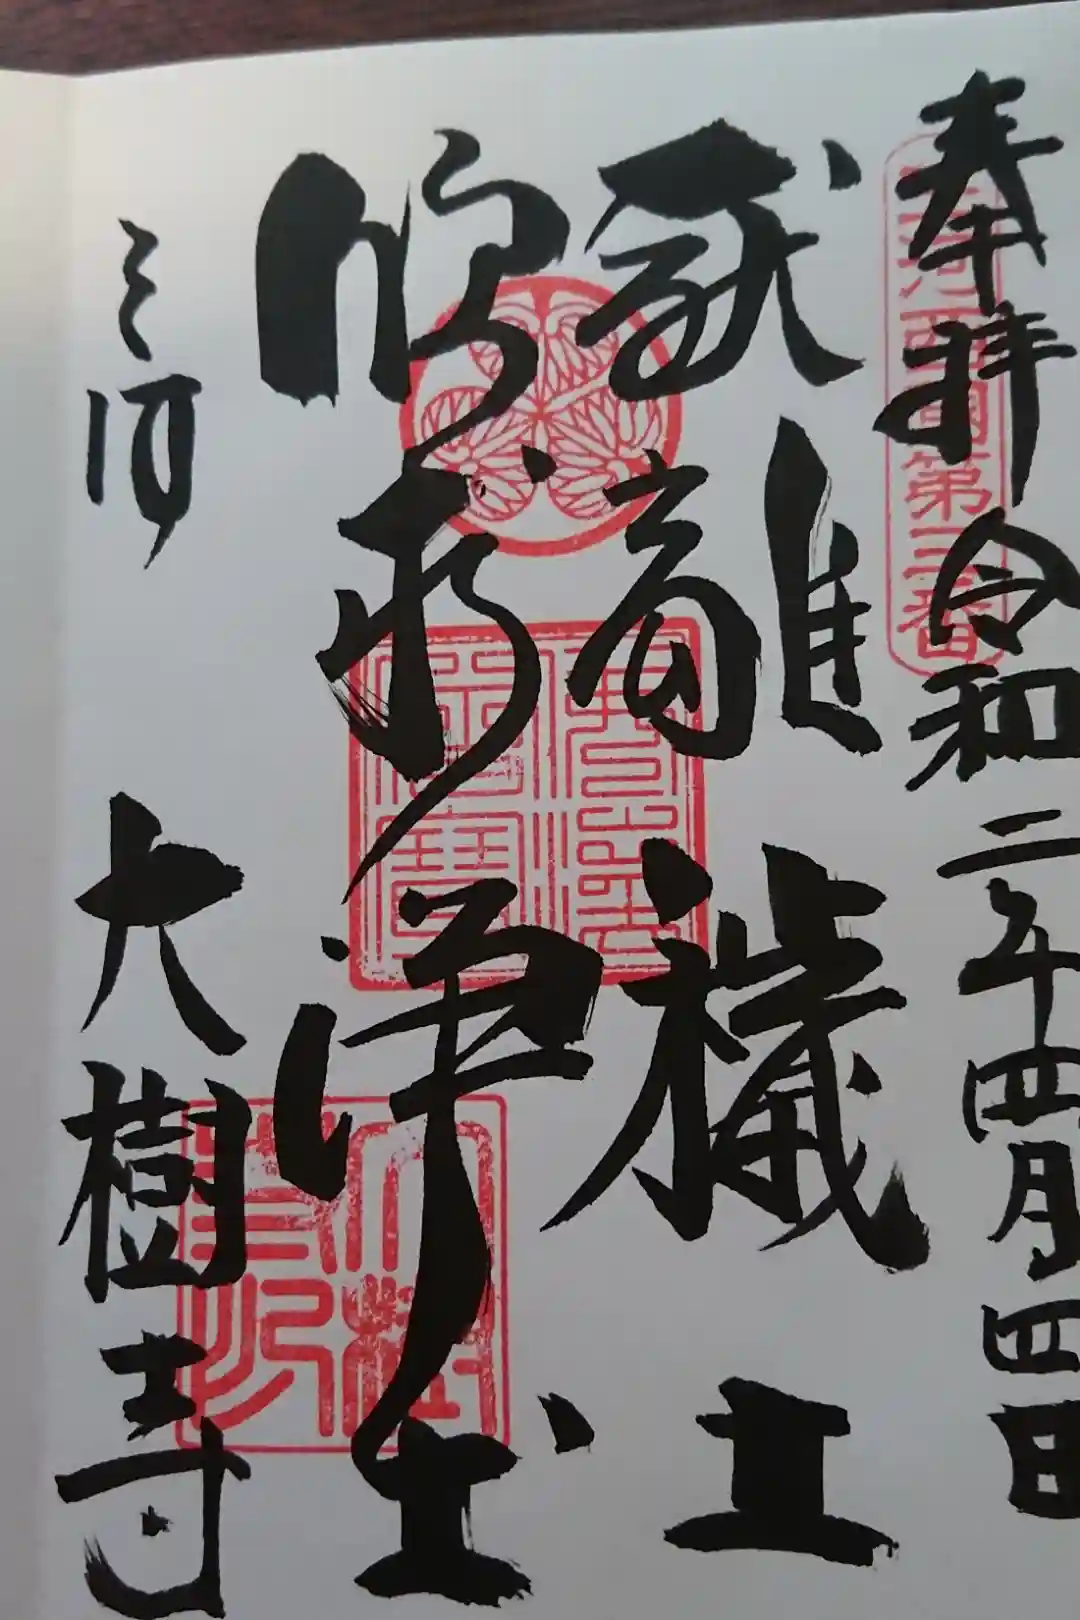 奉拝 令和二年四月四日
三河西国第三番
厭離穢土
欣求浄土
三河
大樹寺